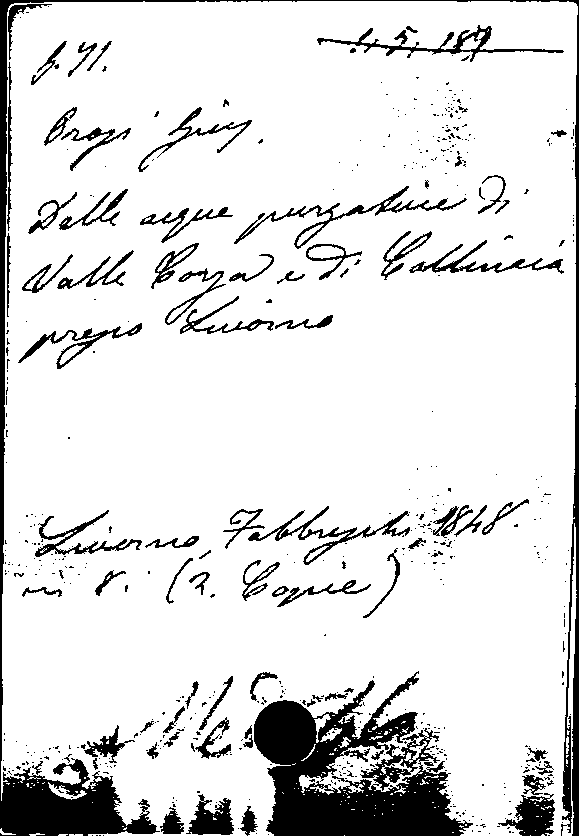 1. 5. 189
Orosi Gius.
Delle acque purgative di
Valle Corsa e di Collinaia
presso Livorno
Livorno, Fabbreschi, 1848.
in 8. (2. Copie)